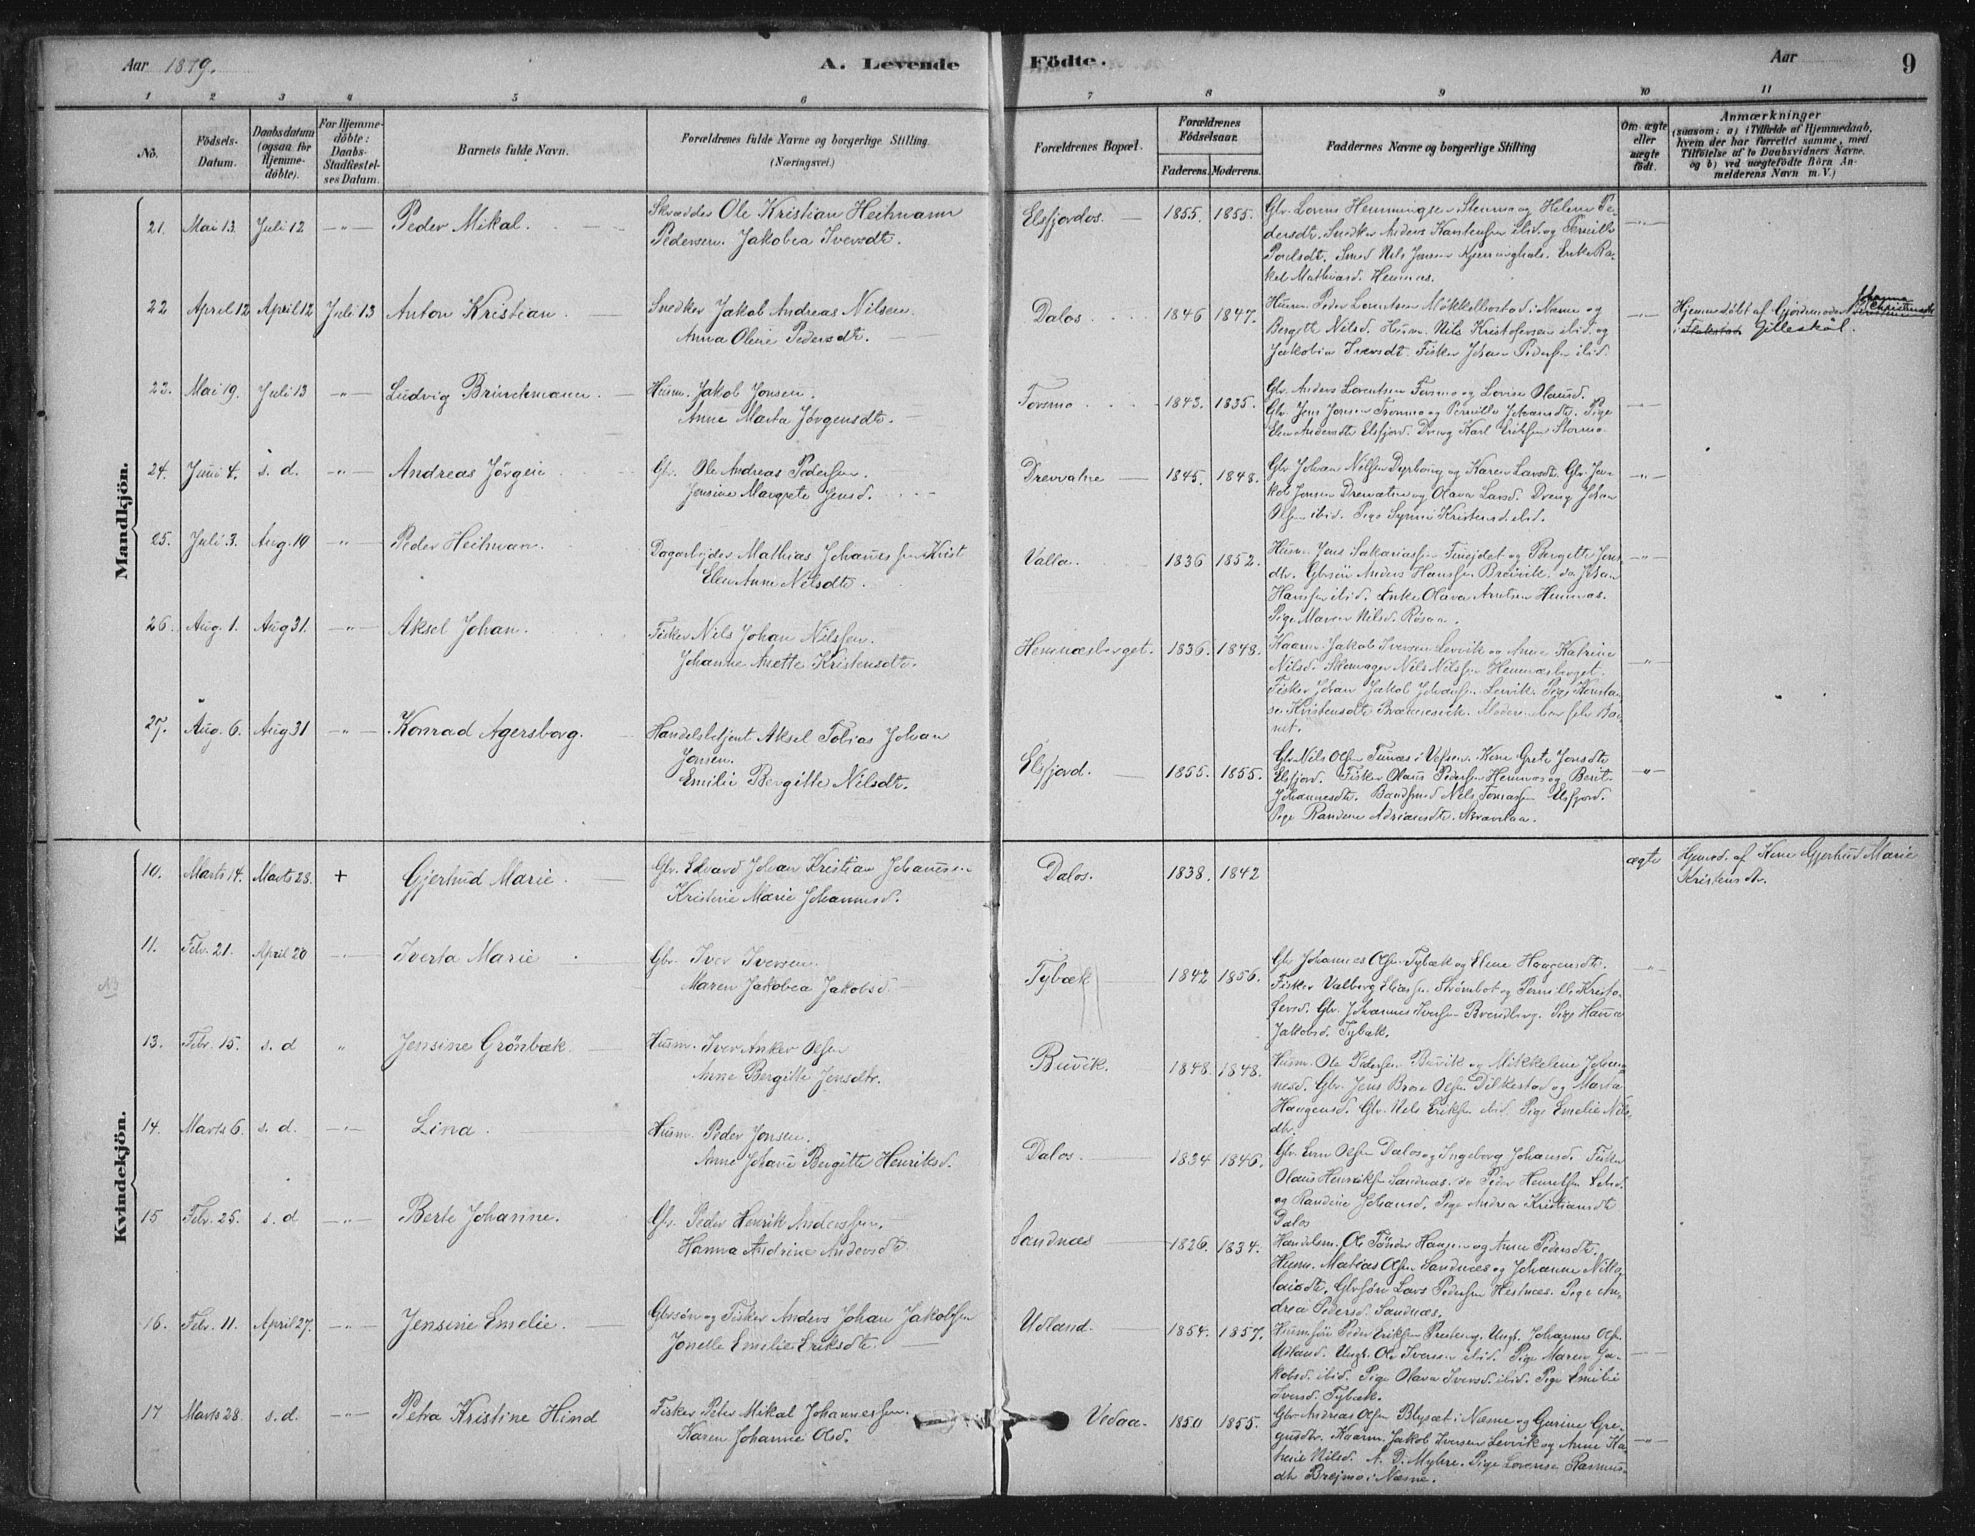 Aar 1879.
A. Levende Födte.
Aar
9
1 2 3 4 5 6 7 8 9 10 11
No.
Födsels-
Datum.
Daabsdatum
(ogsaa for
Hjemme-
döbte).
For Hjemme-
döbte:
Daabs-
Stadfæstel-
ses Datum.
Barnets fulde Navn.
Forældrenes fulde Navne og borgerlige Stilling.
(Næringsvei.)
Forældrenes Bopæl.
Forældrenes
Födselsaar.
Faderens. Moderens.
Faddernes Navne og borgerlige Stilling
Om ægte
eller
uægte
födt.
Anmærkninger
(saasom: a) i Tilfælde af Hjemmedaab,
hvem der har forrettet samme, med
Tilföielse af to Daabsvidners Navne.
og b) ved uægtefödte Börn An-
melderens Navn m. V.)
Mandkjön.
21. Mai 13. Juli 12 —"— Peder Mikal.
Skrædder Ole Kristian Heitmann
Pedersen. Jakobea Iversdt.
Elsfjordos. 1855. 1855.
Gbr. Lorens Hemmingsen Stenmo og Helene Pe-
dersdt. Snedker Anders Karstensen ibid. og Pernille
Poulsdt. Smed Nils Jensen Kjerringhals. Enke Ra-
kel Mathiasd. Hemnæs.
—"—
22 April 12 April 12 Juli 13 Anton Kristian
Snedker Jakob Andreas Nilsen
Anna Oline Pedersdt.
Dalos. 1846 1847.
Husm. Peder Lorentsen Møkkelbostad i Næsne og
Bergitte Nilsd. Husm. Nils Kristofersen ibid. og
Jakobia Iversdt. Fisker Johan Pedersen ibid.
—"—
Hjemmedøbt af Gjordemoder Johanna
Christensdt
i Gilleskål.
23. Mai 19. Juli 13 —"— Ludvig Brinchmann
Husm. Jakob Jonsen.
Anne Marta Jørgensdt.
Forsmo 1843. 1835.
Gbr. Anders Lorentsen Forsmo og Lovise Olausd.
Gbr. Jens Jonsen Fronmo og Pernille Johansdt. Pige
Elen Andersdt Elsfjord. Dreng Karl Eriksen Stormo.
—"—
24. Juni 4. s. d. —"— Andreas Jörgen
Gbr. Ole Andreas Pedersen.
Jensine Margrete Jensd.
Drevvatne 1845. 1848.
Gbr. Johan Nilsen Dyrhaug og Karen Larsdt. Gbr. Ja-
kob Jonsen Drevatne og Olava Larsd. Dreng Johan
Olsen ibid. Pige Synnei Kristensd. ibid.
—"—
25. Juli 3. Aug. 19 —"— Peder Heitman.
Dagarbejder Mathias Johannessen Krist
Elen Anne Nilsdt.
Valla. 1836 1852.
Husm. Jens Sakariassen Finejdet og Bergitte Jens-
dtr. Gbrsøn Anders Hanssen Brèivik. do. Johan
Hanssen ibid. Enke Olava Arntsen Hemnæs.
Pige Maren Nilsd. Røsaa.
—"—
26. Aug. 1. Aug 31. —"— Aksel Johan.
Fisker Nils Johan Nilssen.
Johanne Anette Kristensdt.
Hemnæsberget. 1836. 1848.
Kaarm. Jakob Iversen Levvik og Anne Katrine
Nilsd. Skomager Nils Nilssen Hemnæsberget.
Fisker Johan Jakob Johansen Leirvik. Pige Konstan-
se Kristensdt Brænnesvik. Moderen bar selv Bar-
net.
—"—
27. Aug. 6. Aug 31 —"— Konrad Agersborg.
Handelsbetjent Aksel Tobias Johan
Jonsen.
Emilie Bergitte Nilsdt.
Elsfjord. 1855. 1855.
Gbr Nils Olsen Tunæs i Vefsen. Kone Grete Jonsdt
Elsfjord. Fisker Olaus Pedersen Hemnæs og Berit
Johannesdt. Baadsmed Nils Tomassen Elsfjord.
Pige Randine Adriansdt. Bravikaa.
—"—
Kvindekjön.
10. Marts 14. Marts 23. + Gjertrud Marie
Gbr. Edvard Johan Kristian Johanness.
Kristine Marie Johannesd.
Dalos. 1838. 1842
ægte
Hjemd. af Kone Gjertrud Marie
Kristensdtr.
11. Febr. 21. April 20 —"— Iverta Marie
Gbr. Iver Iversen.
Maren Jakobea Jakobsd.
Tybæk 1842 1856.
Gbr Johannes Olsen Tybæk og Elene Haagensdt.
Fisker Valberg Eliassen Strømbot og Pernille Kristo-
fersd. Gbr. Johannes Iversen Brendberg. Pige Hanna
Jakobsd. Tybæk.
—"—
NB
13. Febr. 15. s. d " Jensine Grönbæk
Husm. Iver Anker Olsen
Anne Bergitte Jensdtr.
Buvik. 1848. 1848.
Husm. Ole Pedersen Buvik og Mikkeline Johan-
nesd. Gbr. Jens Brose Olsen Dilkestad og Marta
Haagensd. Gbr. Nils Eriksen ibid. Pige Emelie Nils-
dtr.
14. Marts 6. s. d. —"— Lina
Husm. Peder Jonsen.
Anne Johane Bergitte Henriksd.
Dalos 1834 1846.
Gbr. Even Olsen Dalos og Ingeborg Johansd. Fisker
Olaus Henriksen Sandnæs. do Peder Henriksen ibid.
og Randine Johansd. Pige Andrea Kristiansdt
Dalos
15 Febr. 25. s. d —"— Berte Johanne.
Gbr. Peder Henrik Anderssen.
Hanna Andrine Andersdt.
Sandnæs 1826. 1834.
Handelsm. Ole Tønder Haagen og Anne Pedersdt.
Husm. Matias Olsen Sandnæs og Johanne Nikko-
laisdt. Gbrsøn Lars Pedersen Hestnæs. Pige An-
drea Pedersd. Sandnæs.
16. Febr. 11. April 27. —"— Jensine Emelie.
Gbrsøn og Fisker Anders Johan Jakobsen
Jonette Emelie Eriksdt.
Udland. 1854. 1857.
Husmsøn Peder Eriksen Presteng. Ungk. Johannes Olsen
Udland. Ungk. Ole Iversen ibid. Pige Maren Ja-
kobsd. ibid. Pige Olava Iversd. ibid. Pige Emilie
Iversd. Tybæk.
17 Marts 28. s. d. —"— Petra Kristine Hind
Fisker Peter Mikal Johannessen.
Karen Johanne Olsd.
Vedaa. 1850 1855.
Gbr Andreas Olsen Blysæt i Næsne og Gurine Gre-
gusdtr. Kaarm. Jakob Iversen Levvik og Anne Ka-
trine Nilsd. A. D. Myhre. Pige Lorense Rasmus-
dt. Brejmo i Næsne.
—"—